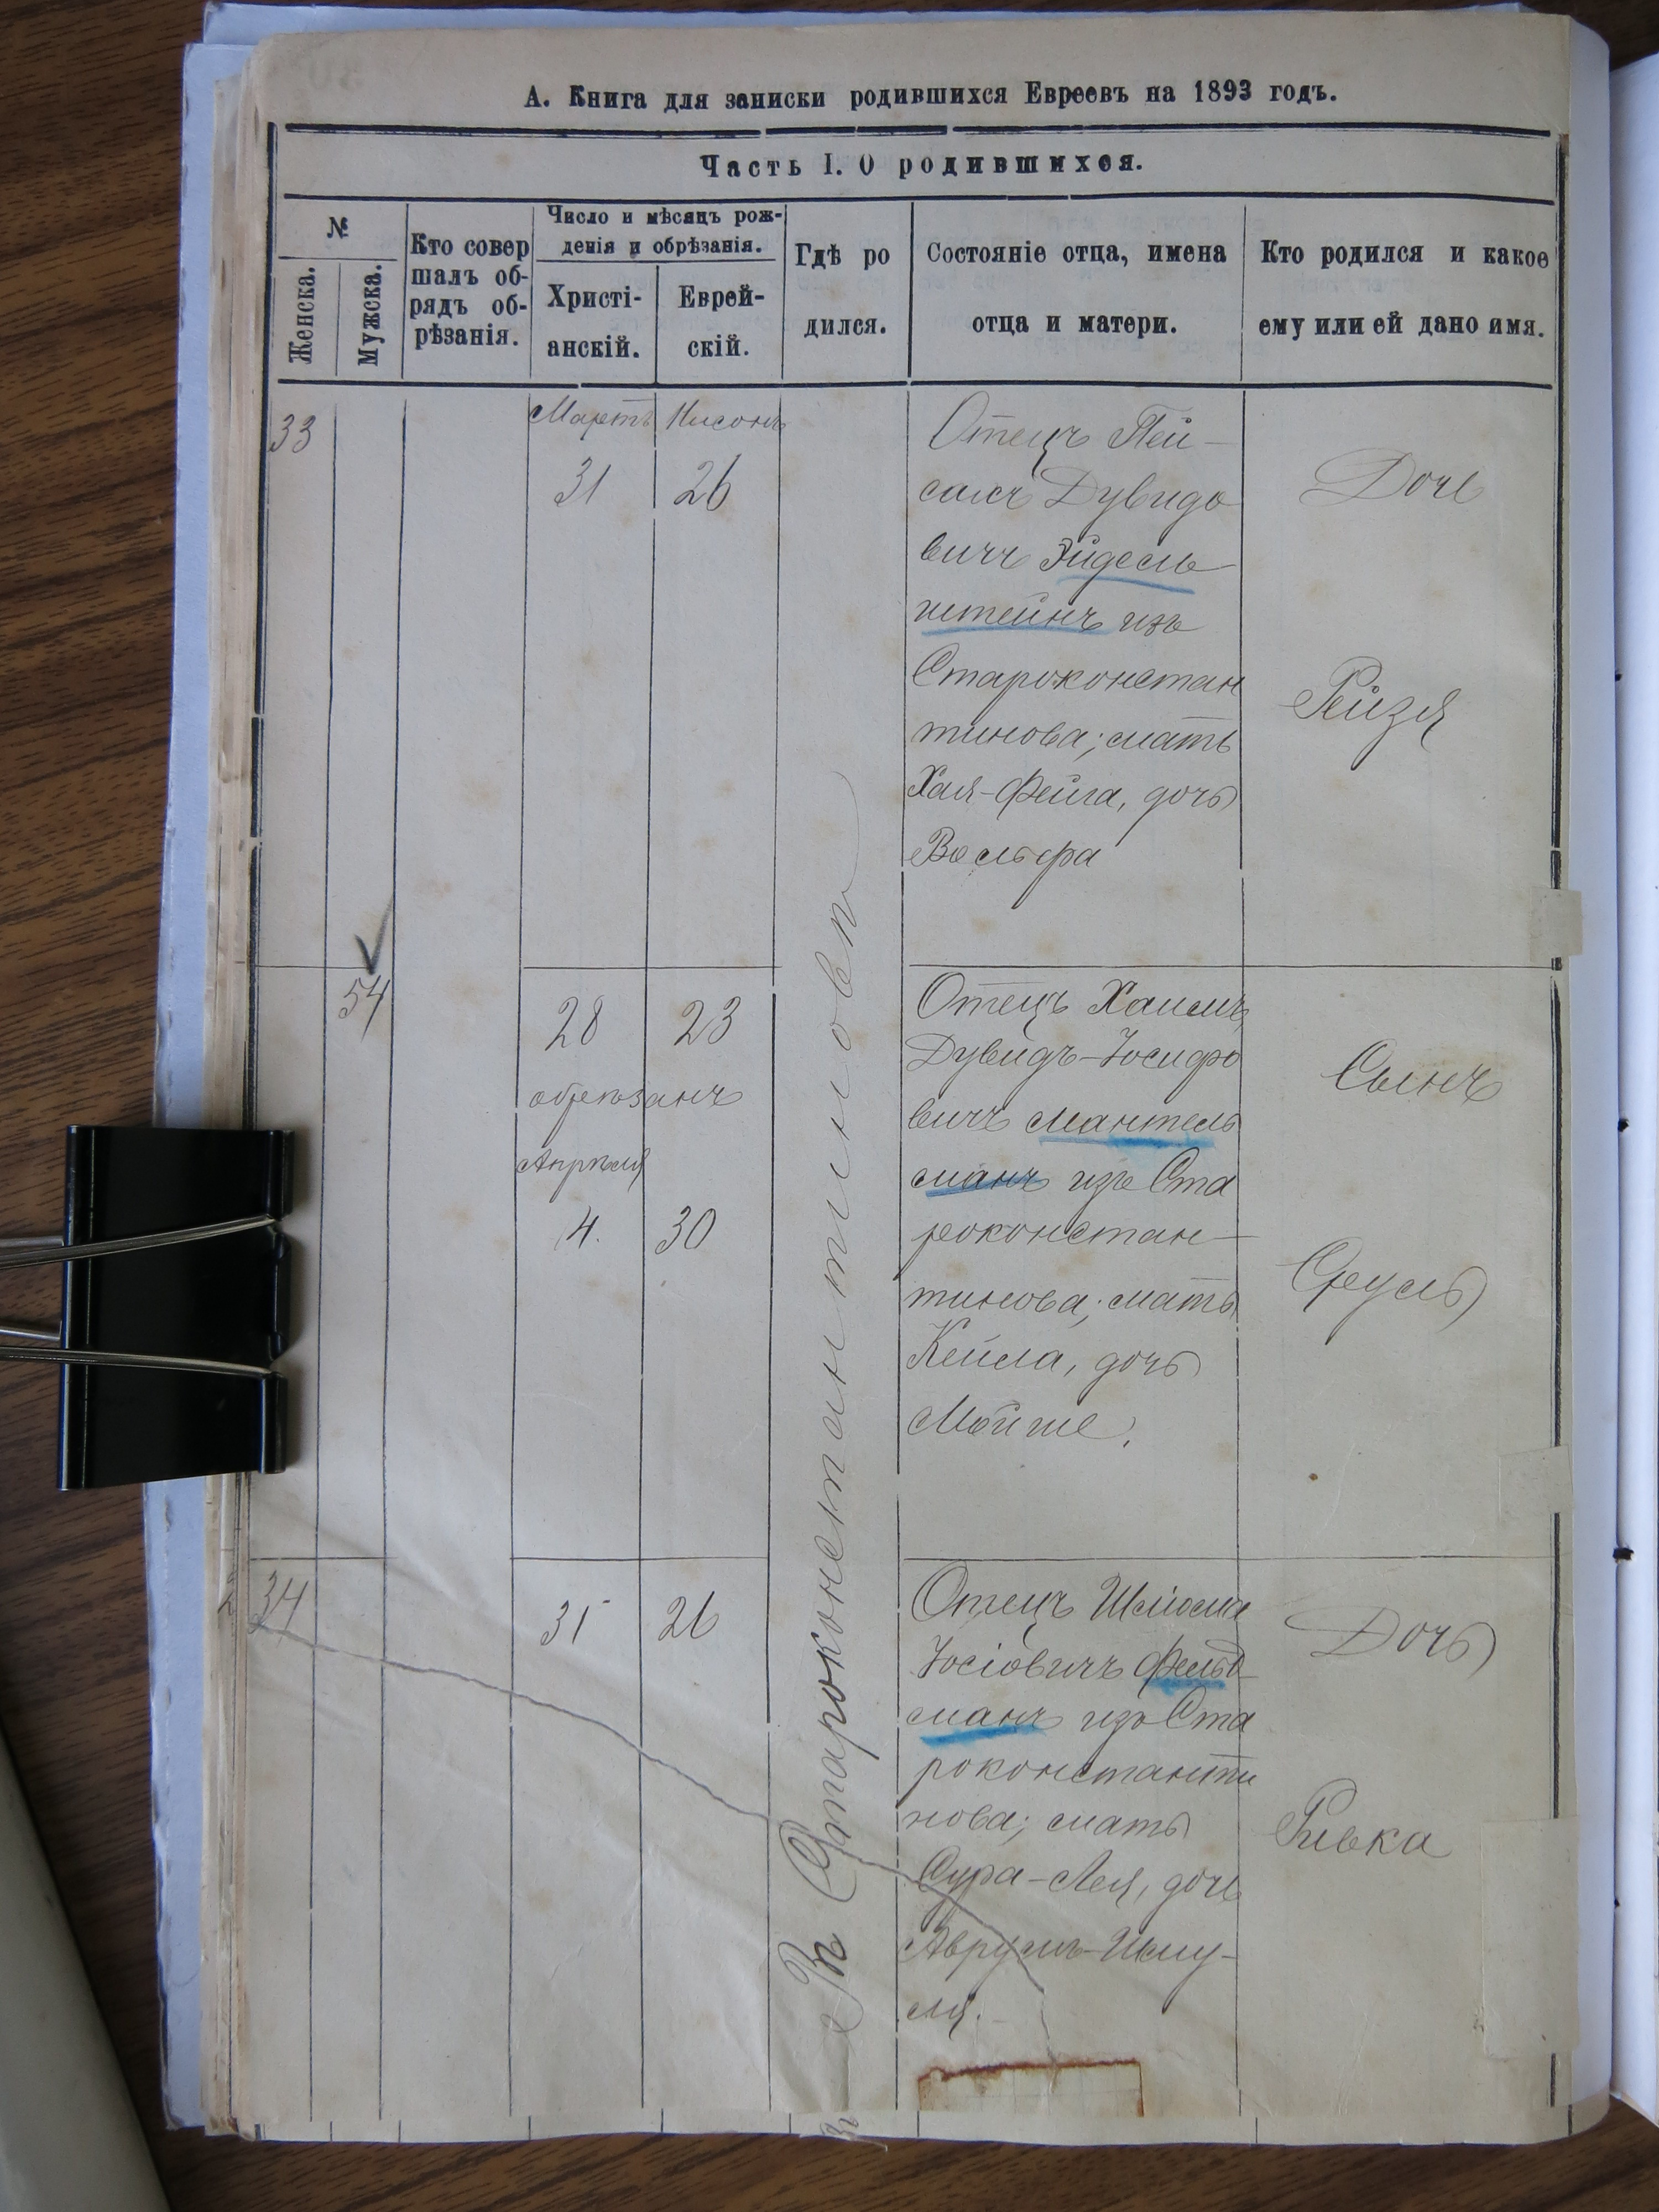 А. Книга для записки родившихся Евреевъ на 1893 годъ.
Часть I. О родившихся.
№
Женска.
Мужска.
Кто совер
шалъ об-
рядъ об-
рѣзанія.
Число и мѣсяцъ рож-
денія и обрѣзанія.
Христі-
анскій.
Еврей-
скій.
Гдѣ ро
дился.
Состояніе отца, имена
отца и матери.
Кто родился и какое
ему или ей дано имя.
33
Мартъ
Нисонъ
31
26
Отецъ Пей-
сахъ Дувидо
вичъ Эйдель
штейнъ изъ
Староконстан
тинова; мать
Хая-Фейга, дочь
Вольфа
Дочь
Рейзя
Въ Староконстантиновѣ
54
28
23
обрѣзанъ
Апрѣля
4.
30
Отецъ Хаимъ
Дувидъ-Іосифо
вичъ Мантель
манъ изъ Ста
роконстан-
тинова; мать
Кейла, дочь
Мойше.
Сынъ
Сруль
34
31
26
Отецъ Шлiома
Іосіовичъ Фельд
манъ изъ Ста
роконстанти
нова; мать
Сура-Лея, дочь
Аврумъ-Шму-
ля.
Дочь
Ривка